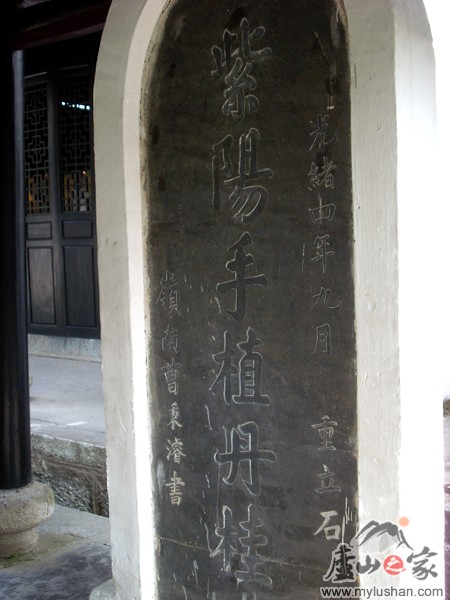 光緒年九月 重立石
紫陽手植丹桂
嶺南曹秉濬書
廬山之家
www.mylushan.com